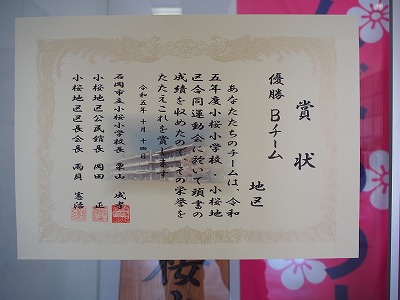 賞状
優勝 Bチーム
地区
あなたたちのチームは、令和
五年度小桜小学校・小桜地
区合同運動会に於いて頭書の
成績を収めたのでその栄誉を
たたえこれを賞します
令和五年十月十四日
石岡市立小桜小学校長 栗山 成幸
小桜地区公民館長 岡田 正
小桜地区区長会長 雨貝 憲治
桜